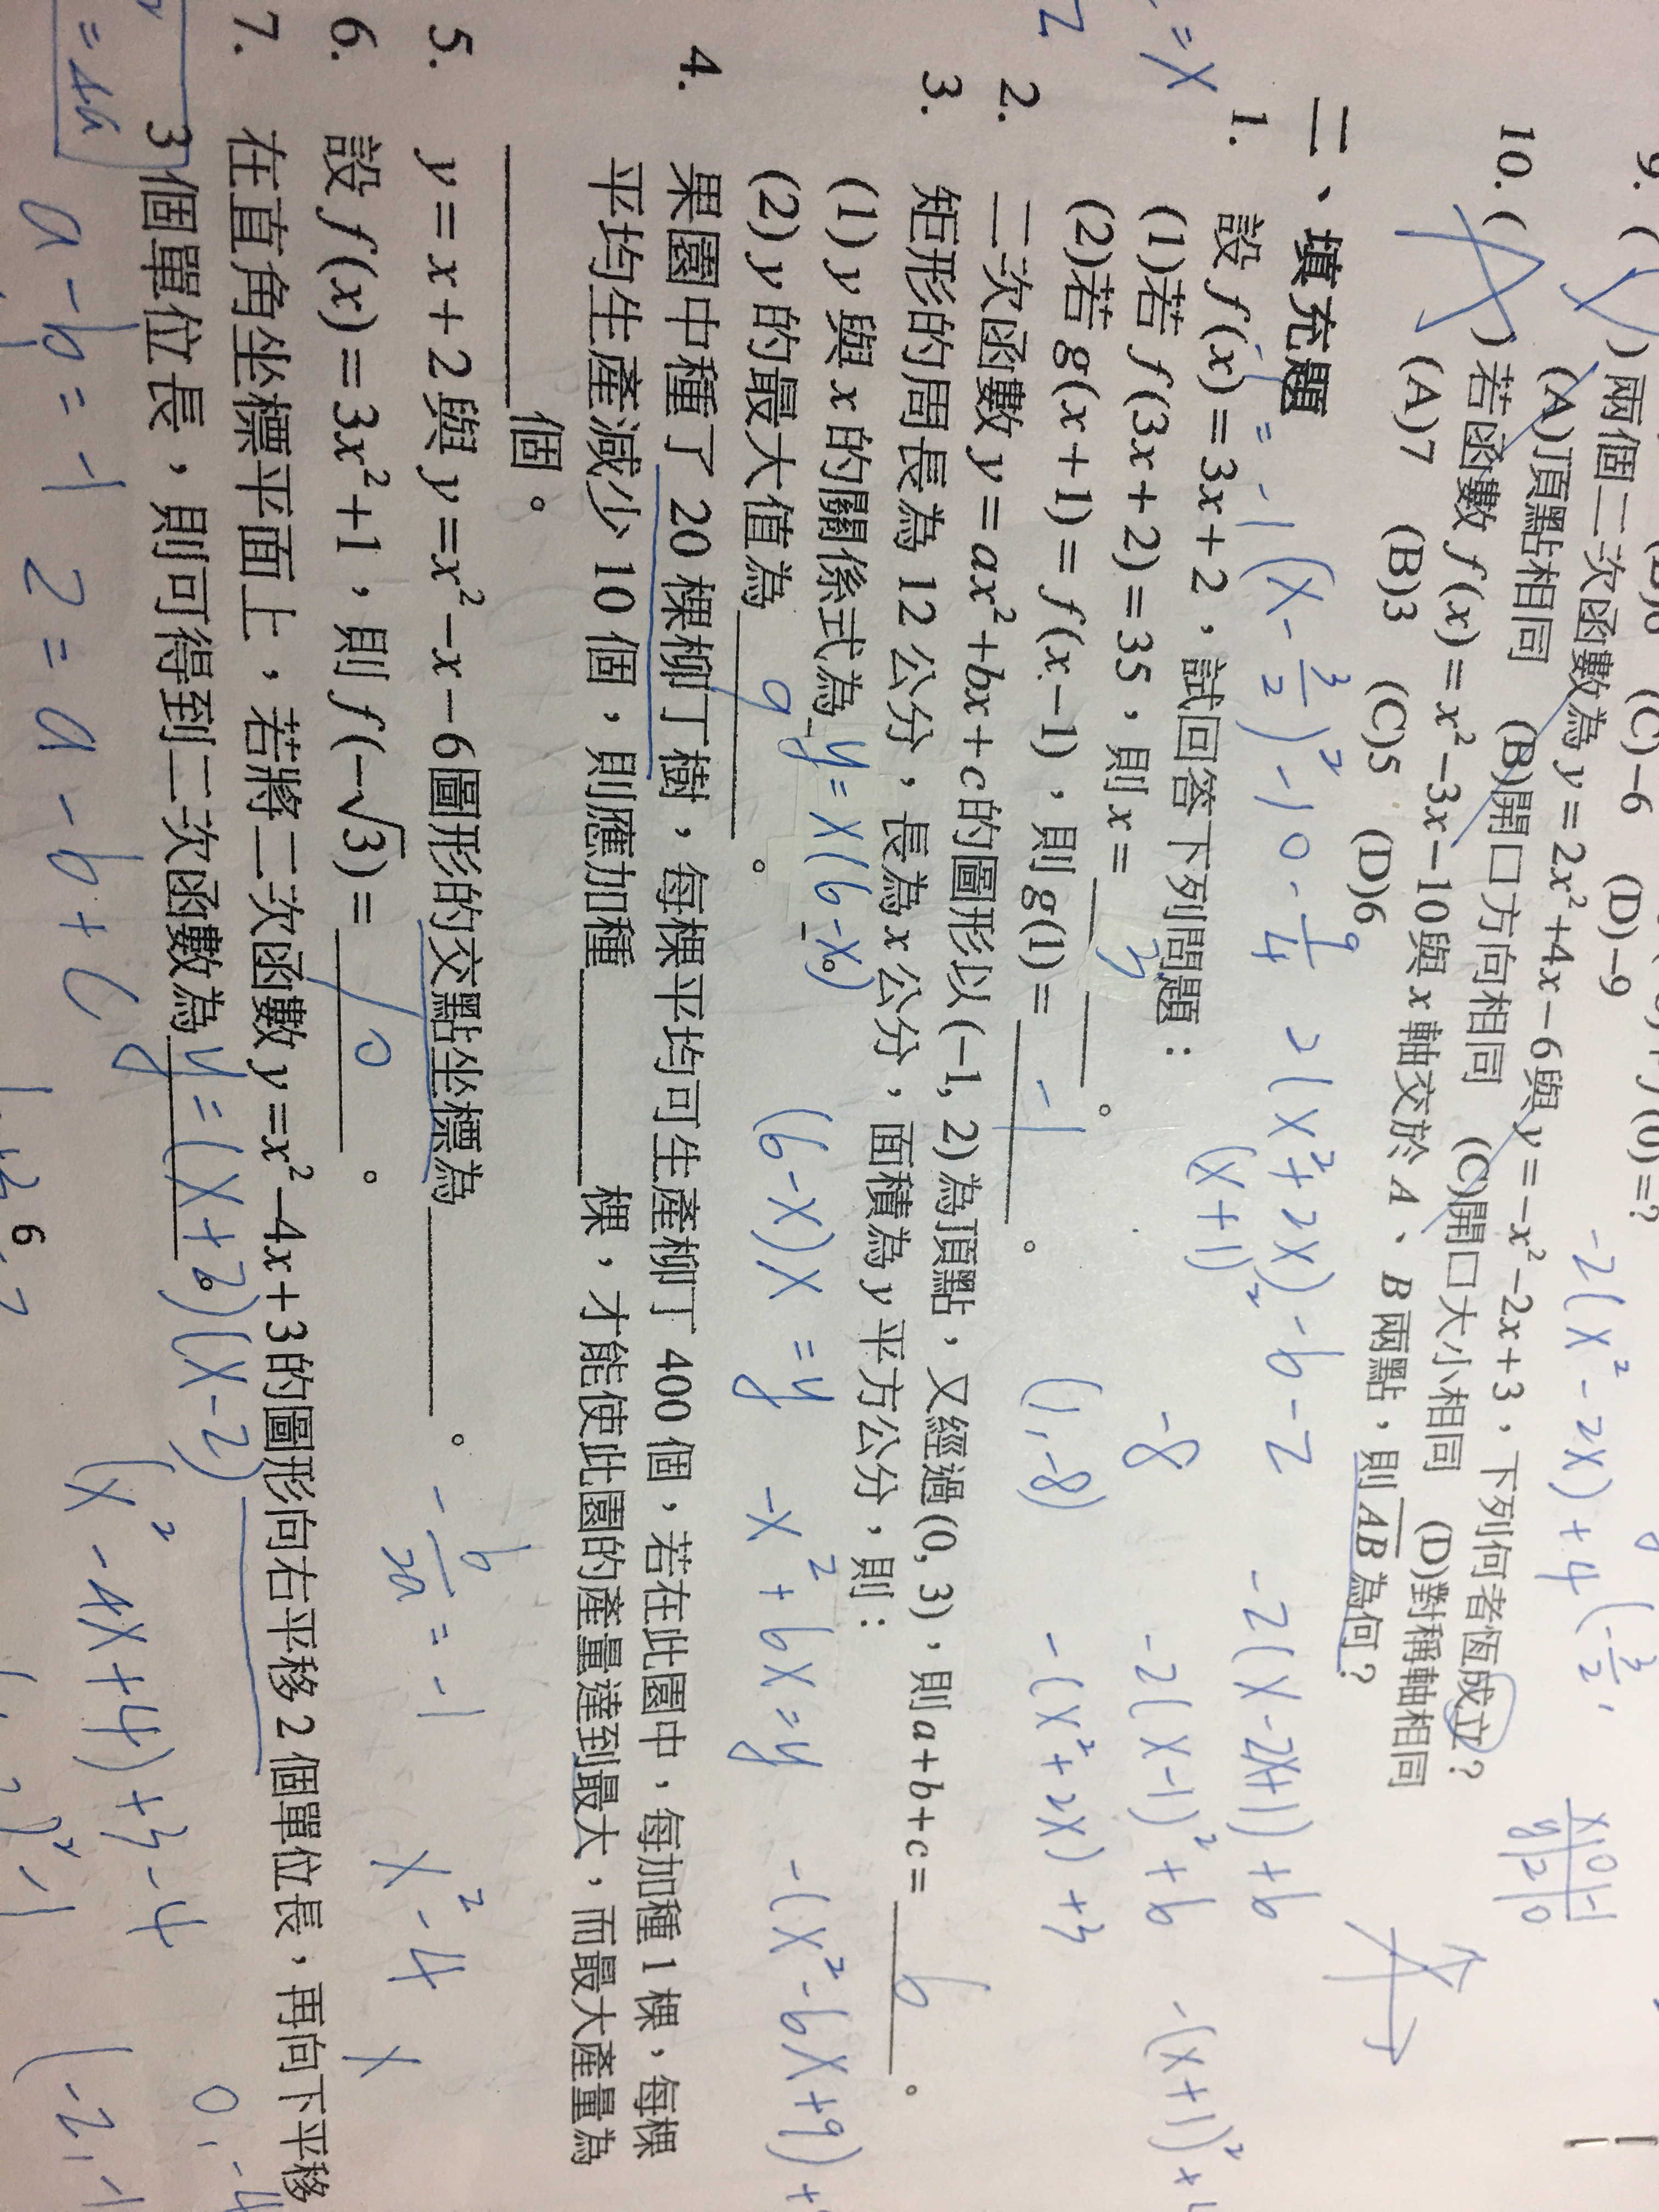 (C)-6 (D)-9
) 兩個二次函數為 y=2x²+4x-6與y=-x²-2x+3,下列何者恆成立?
(A)頂點相同 (B)開口方向相同 (C)開口大小相同 (D)對稱軸相同
10. ( ) 若函數 f(x)=x²-3x-10與 x 軸交於 A、B 兩點,則 AB 為何?
(A)7 (B)3 (C)5 (D)6
-2(x²-2x)+4
二、填充題
= -1 (x-3/2)²-10-9/4 2(x²+2x)-6-2 -2(x-2x+1)+6
(x+1)² -8 -2(x-1)²+6 -(x+1)²+
1. 設 f(x)=3x+2,試回答下列問題:
(1)若 f(3x+2)=35,則 x= 3 。
(2)若 g(x+1)=f(x-1),則 g(1)= -1 。
(1,-8) -(x²+2x)+3
2. 二次函數 y=ax²+bx+c 的圖形以(-1, 2)為頂點,又經過(0, 3),則 a+b+c= 6 。
3. 矩形的周長為 12 公分,長為 x 公分,面積為 y 平方公分,則:
(1) y 與 x 的關係式為 y=x(6-x) 。
(2) y 的最大值為 9 。
(6-x)x=y -x²+6x=y -(x²-6x+9)+
4. 果園中種了 20 棵柳丁樹,每棵平均可生產柳丁 400 個,若在此園中,每加種 1 棵,每棵
平均生產減少 10 個,則應加種 棵,才能使此園的產量達到最大,而最大產量為
個。
5. y=x+2與 y=x²-x-6圖形的交點坐標為 。
-b/2a=-1 x²-4 x
6. 設 f(x)=3x²+1,則 f(-√3)= 10 。
7. 在直角坐標平面上,若將二次函數 y=x²-4x+3的圖形向右平移 2 個單位長,再向下平移
3 個單位長,則可得到二次函數為 y=(x+2)(x-2) 。
(x²-4x+4)+3-4
a-b=-1 2=a-b+c